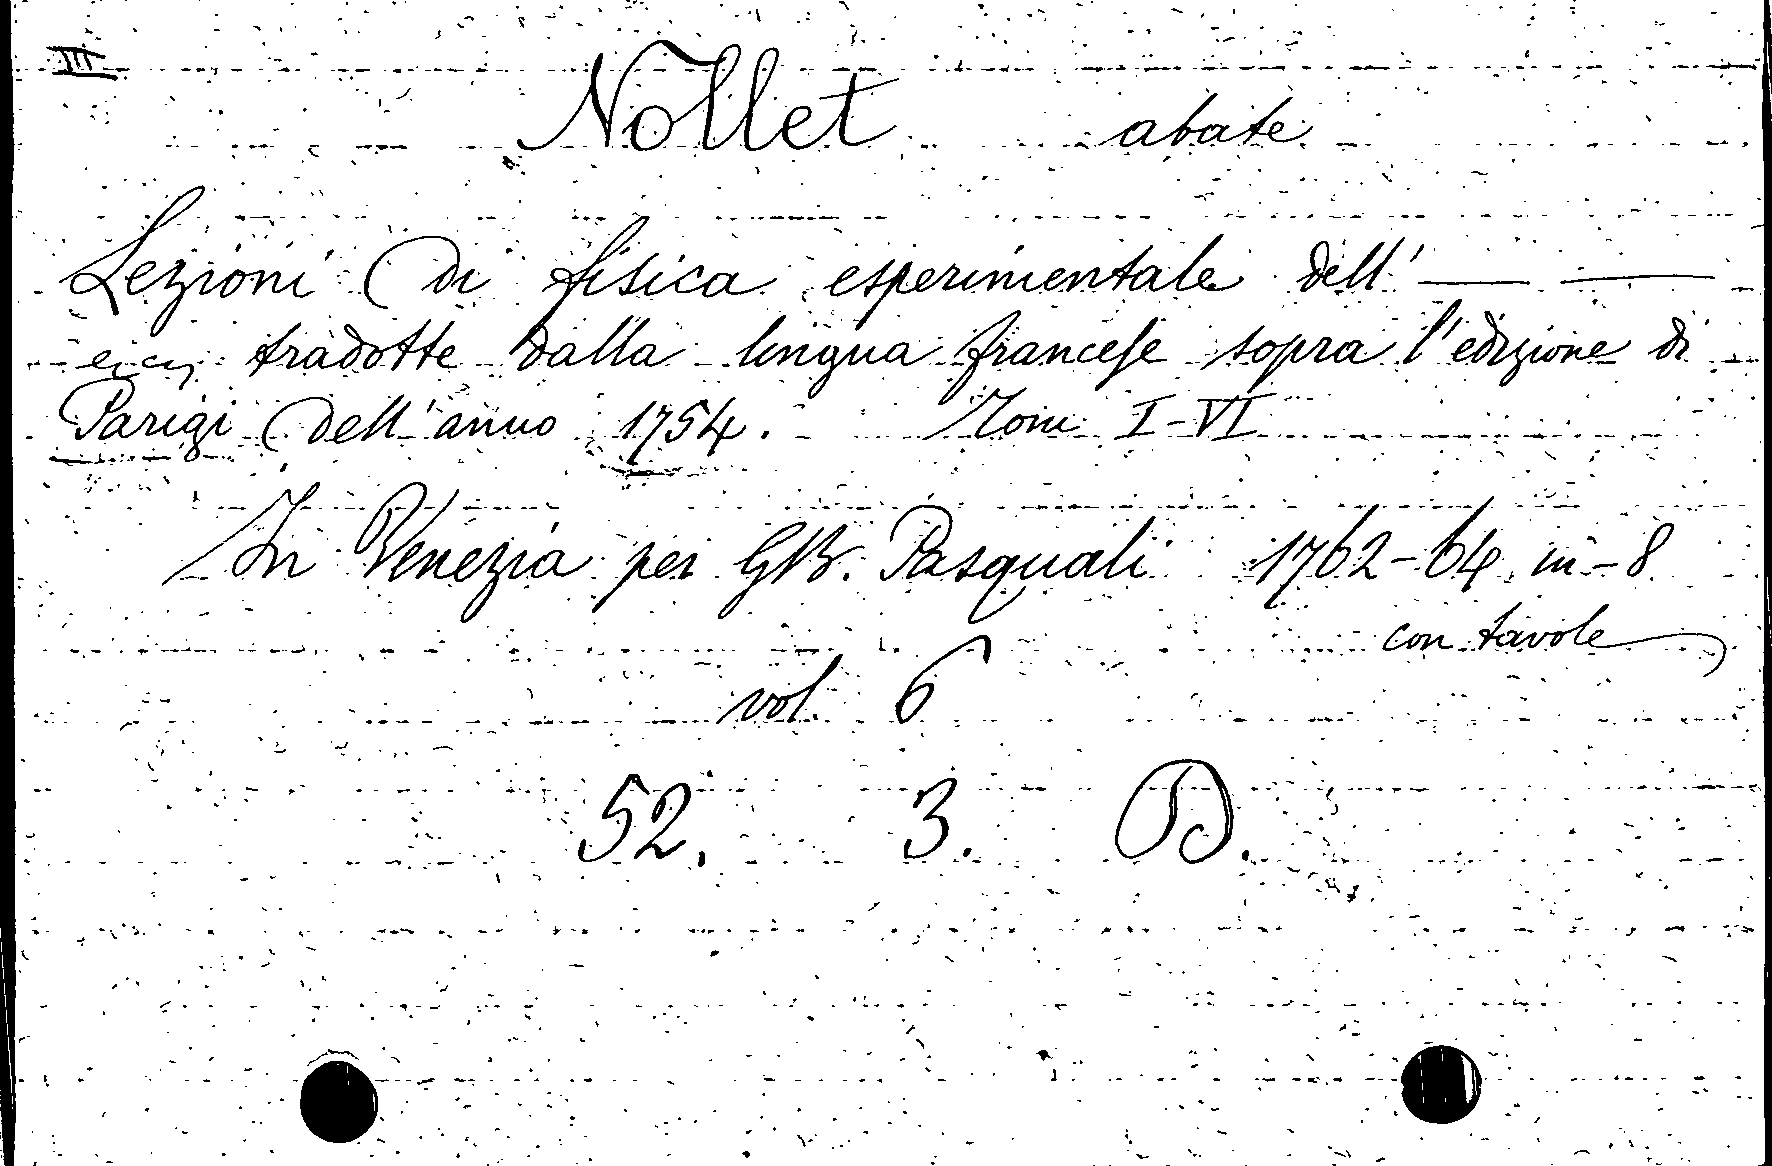 III
Nollet abate
Lezioni di fisica esperimentale dell' — —
tradotte dalla lingua francese sopra l'edizione di
Parigi dell'anno 1754. Tomi I-VI
In Venezia per GB. Pasquali 1762-64 in-8
con tavole
vol. 6
52. 3. D.